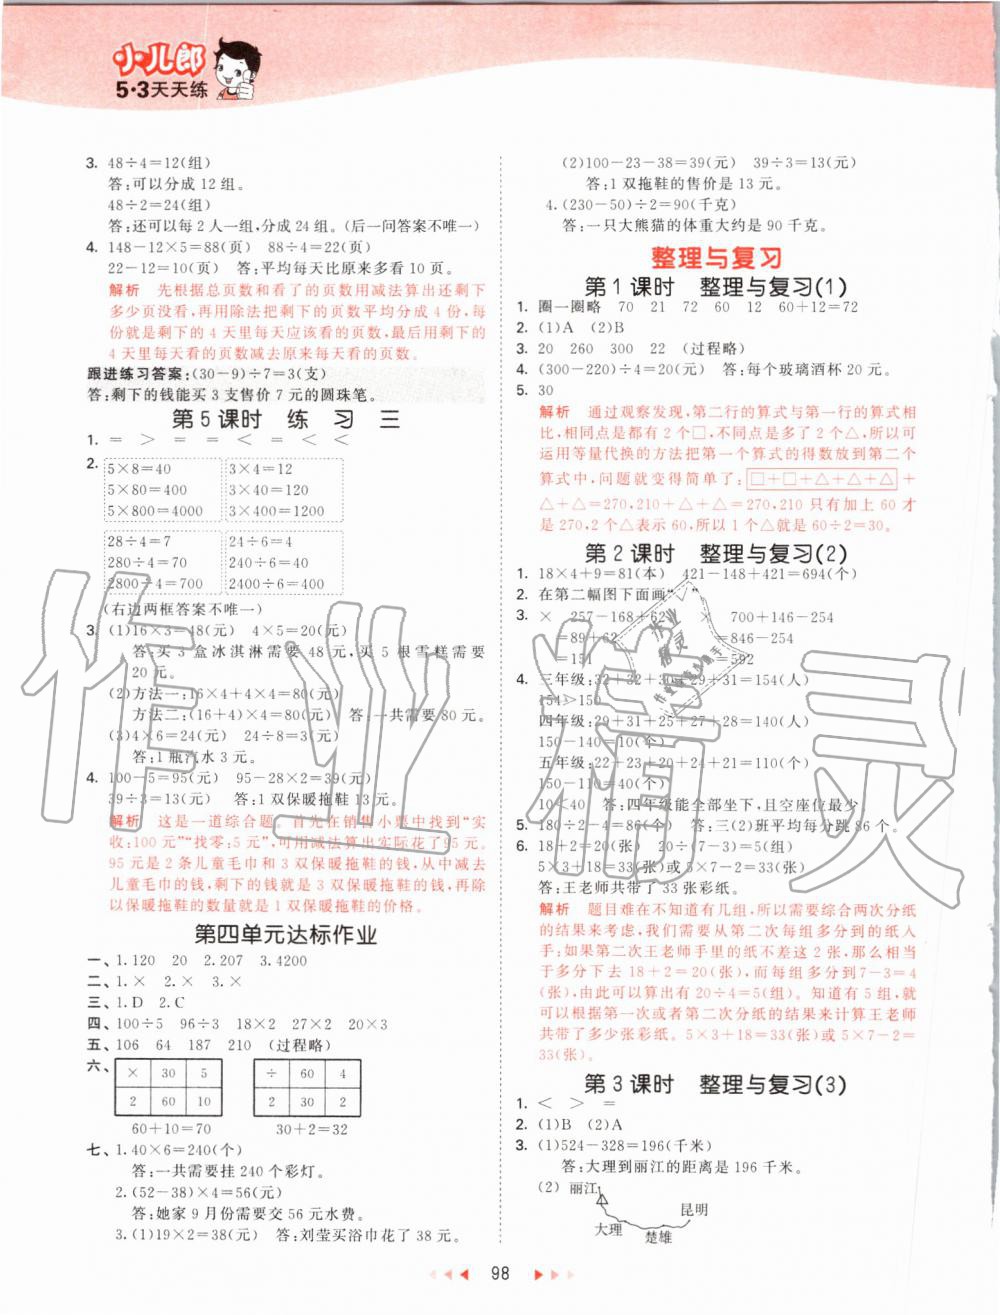 小儿郎
5·3天天练
3. 48÷4=12(组)
答:可以分成 12 组。
48÷2=24(组)
答:还可以每 2 人一组,分成 24 组。(后一问答案不唯一)
4. 148-12×5=88(页) 88÷4=22(页)
22-12=10(页) 答:平均每天比原来多看 10 页。
解析 先根据总页数和看了的页数用减法算出还剩下
多少页没看,再用除法把剩下的页数平均分成 4 份,每
份就是剩下的 4 天里每天应该看的页数,最后用剩下的
4 天里每天看的页数减去原来每天看的页数。
跟进练习答案:(30-9)÷7=3(支)
答:剩下的钱能买 3 支售价 7 元的圆珠笔。
第 5 课时 练 习 三
1. = > = = < = < <
2. 5×8=40 3×4=12
5×80=400 3×40=120
5×800=4000 3×400=1200
28÷4=7 24÷6=4
280÷4=70 240÷6=40
2800÷4=700 2400÷6=400
(右边两框答案不唯一)
3. (1)16×3=48(元) 4×5=20(元)
答:买 3 盒冰淇淋需要 48 元,买 5 根雪糕需要
20 元。
(2)方法一:16×4+4×4=80(元)
方法二:(16+4)×4=80(元) 答:一共需要 80 元。
(3)4×6=24(元) 24÷8=3(元)
答:1 瓶汽水 3 元。
4. 100-5=95(元) 95-28×2=39(元)
39÷3=13(元) 答:1 双保暖拖鞋 13 元。
解析 这是一道综合题。首先在销售小票中找到“实
收:100 元”“找零:5 元”,可用减法算出实际花了 95 元。
95 元是 2 条儿童毛巾和 3 双保暖拖鞋的钱,从中减去
儿童毛巾的钱,剩下的钱就是 3 双保暖拖鞋的钱,再除
以保暖拖鞋的数量就是 1 双保暖拖鞋的价格。
第四单元达标作业
一、1.120 20 2.207 3.4200
二、1.× 2.× 3.×
三、1.D 2.C
四、100÷5 96÷3 18×2 27×2 20×3
五、106 64 187 210 (过程略)
六、
× 30 5
2 60 10
÷ 60 4
2 30 2
60+10=70 30+2=32
七、1.40×6=240(个)
答:一共需要挂 240 个彩灯。
2.(52-38)×4=56(元)
答:她家 9 月份需要交 56 元水费。
3.(1)19×2=38(元) 答:刘莹买浴巾花了 38 元。
(2)100-23-38=39(元) 39÷3=13(元)
答:1 双拖鞋的售价是 13 元。
4.(230-50)÷2=90(千克)
答:一只大熊猫的体重大约是 90 千克。
整理与复习
第 1 课时 整理与复习(1)
1. 圈一圈略 70 21 72 60 12 60+12=72
2. (1)A (2)B
3. 20 260 300 22 (过程略)
4. (300-220)÷4=20(元) 答:每个玻璃酒杯 20 元。
5. 30
解析 通过观察发现,第二行的算式与第一行的算式相
比,相同点是都有 2 个□,不同点是多了 2 个△,所以可
运用等量代换的方法把第一个算式的得数放到第二个
算式中,问题就变得简单了:□+□+△+△+△+
△+△=270,210+△+△=270,210 只有加上 60 才
是 270,2 个△表示 60,所以 1 个△就是 60÷2=30。
第 2 课时 整理与复习(2)
1. 18×4+9=81(本) 421-148+421=694(个)
2. 在第二幅图下面画“√”
3. × 257-168+62 × 700+146-254
=89+62 =846-254
=151 =592
4. 三年级:32+32+30+29+31=154(人)
154>150
四年级:29+31+25+27+28=140(人)
150-140=10(个)
五年级:22+23+20+24+21=110(个)
150-110=40(个)
10<40 答:四年级能全部坐下,且空座位最少。
5. 180÷2-4=86(个) 答:三(2)班平均每分跳 86 个。
6. 18+2=20(张) 20÷(7-3)=5(组)
5×3+18=33(张)或 5×7-2=33(张)
答:王老师共带了 33 张彩纸。
解析 题目难在不知道有几组,所以需要综合两次分纸
的结果来考虑,我们需要从第二次每组多分到的纸入
手:如果第二次王老师手里的纸不差这 2 张,那么相当
于多分下去 18+2=20(张),而每组多分到7-3=4
(张),由此可以算出有 20÷4=5(组)。知道有 5 组,就
可以根据第一次或者第二次分纸的结果来计算王老师
共带了多少张彩纸。5×3+18=33(张)或 5×7-2=
33(张)。
第 3 课时 整理与复习(3)
1. < > =
2. (1)B (2)A
3. (1)524-328=196(千米)
答:大理到丽江的距离是 196 千米。
(2) 丽江
大理
楚雄
昆明
98
作业精灵